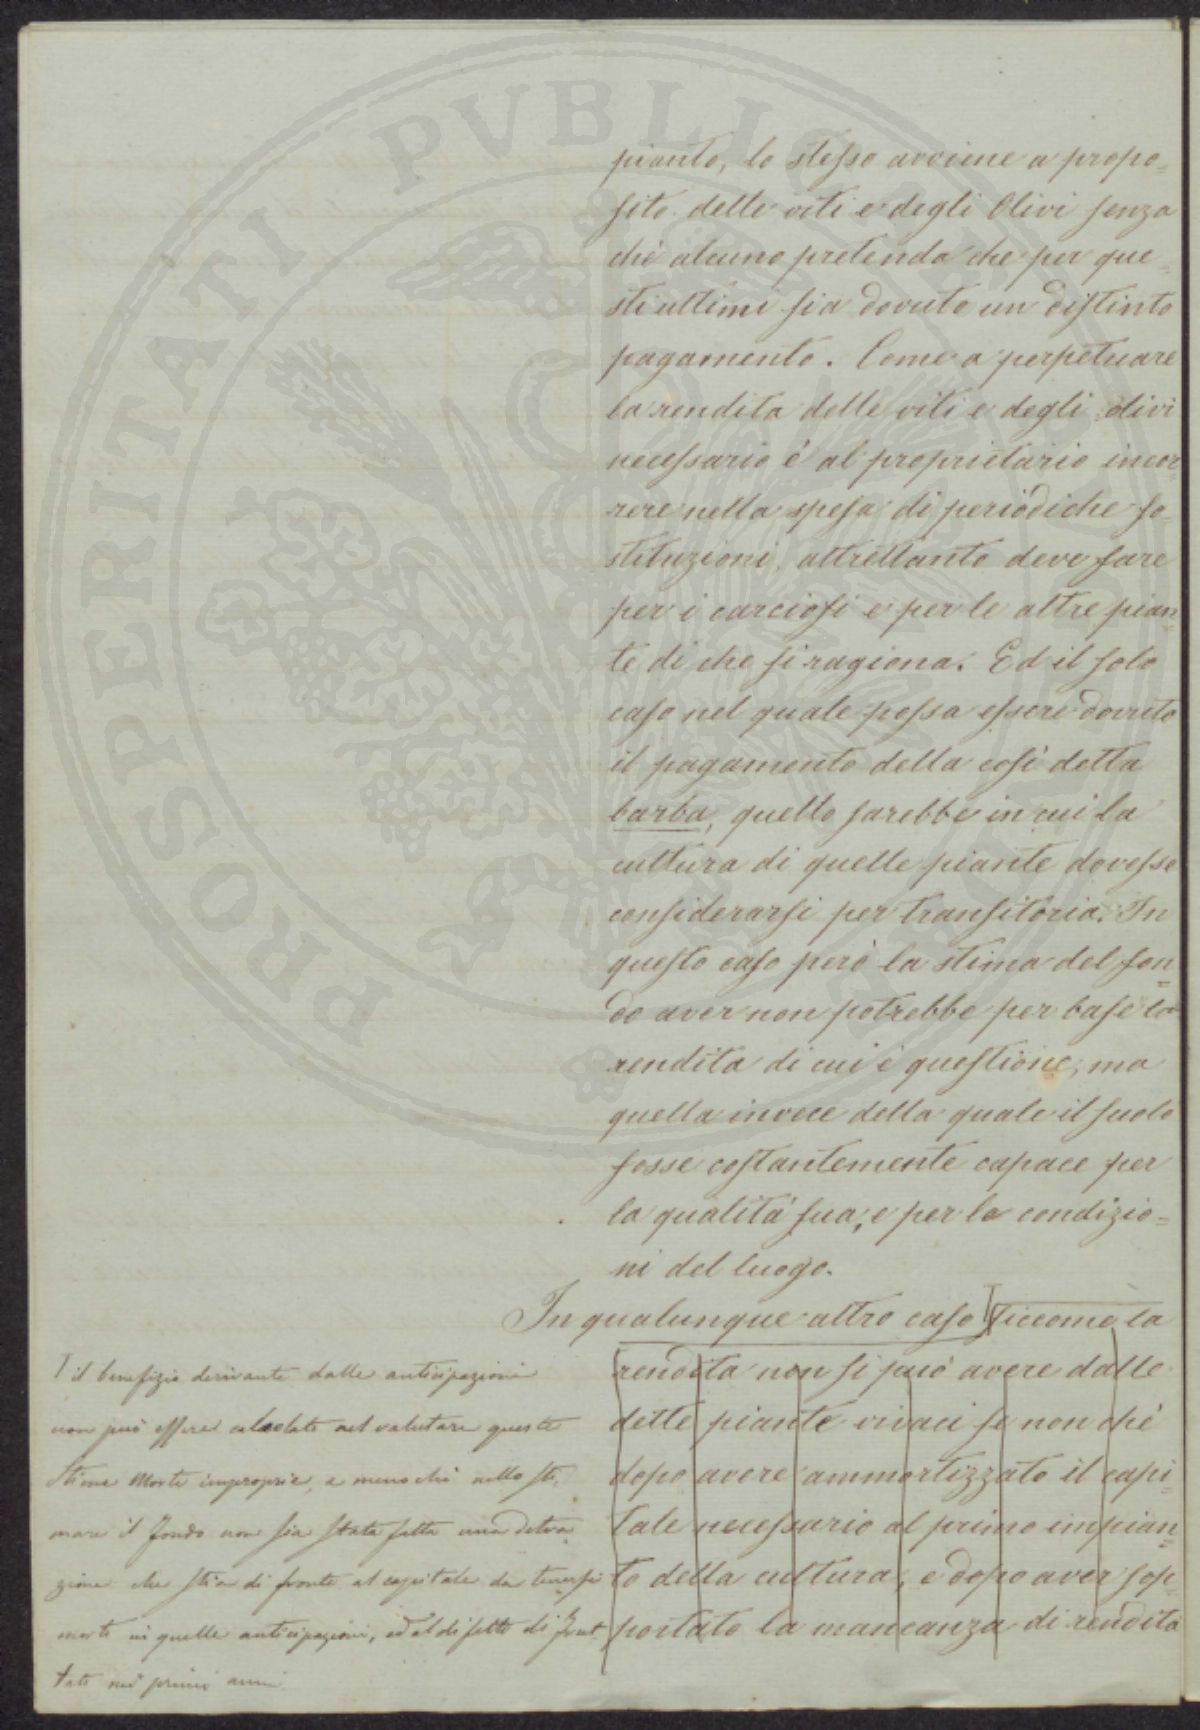 pianto, lo stesso avviene a propo=
sito delle viti e degli Olivi senza
chè alcuno pretenda che per que=
sti ultimi sia dovuto un distinto
pagamento. Come a perpetuare
la rendita delle viti e degli olivi
necessario è al proprietario incor
rere nella spesa di periodiche so=
stituzioni, altrettanto deve fare
per i carciofi e per le altre pian=
te di che si ragiona. Ed il solo
caso nel quale possa essere dovuto
il pagamento della così detta
barba, quello sarebbe in cui la
cultura di quelle piante dovesse
considerarsi per transitoria. In
questo caso però la stima del fon=
do aver non potrebbe per base la
rendita di cui è questione, ma
quella invece della quale il suolo
fosse costantemente capace per
la qualità sua, e per le condizio=
ni del luogo.
In qualunque altro caso siccome la
rendita non si può avere dalle
dette piante vivaci se non chè
dopo avere ammortizzato il capi=
tale necessario al primo impian=
to della cultura, e dopo aver sop=
portato la mancanza di rendita
il benefizio derivante dalle anticipazioni
non può essere calcolato nel valutare queste
stime morte improprie, a meno chè nello sti=
mare il fondo non sia stata fatta una detra
zione che stia di fronte al capitale da tenersi
morto in quelle anticipazioni, ed al difetto di frut
tato nei primi anni
PROSPERITATI PVBLICAE